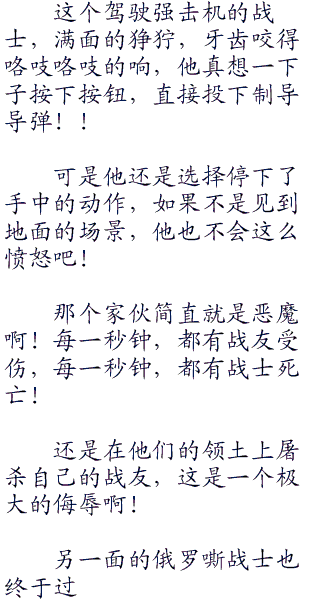 这个驾驶强击机的战
士，满面的狰狞，牙齿咬得
咯吱咯吱的响，他真想一下
子按下按钮，直接投下制导
导弹！！
可是他还是选择停下了
手中的动作，如果不是见到
地面的场景，他也不会这么
愤怒吧！
那个家伙简直就是恶魔
啊！每一秒钟，都有战友受
伤，每一秒钟，都有战士死
亡！
还是在他们的领土上屠
杀自己的战友，这是一个极
大的侮辱啊！
另一面的俄罗嘶战士也
终于过